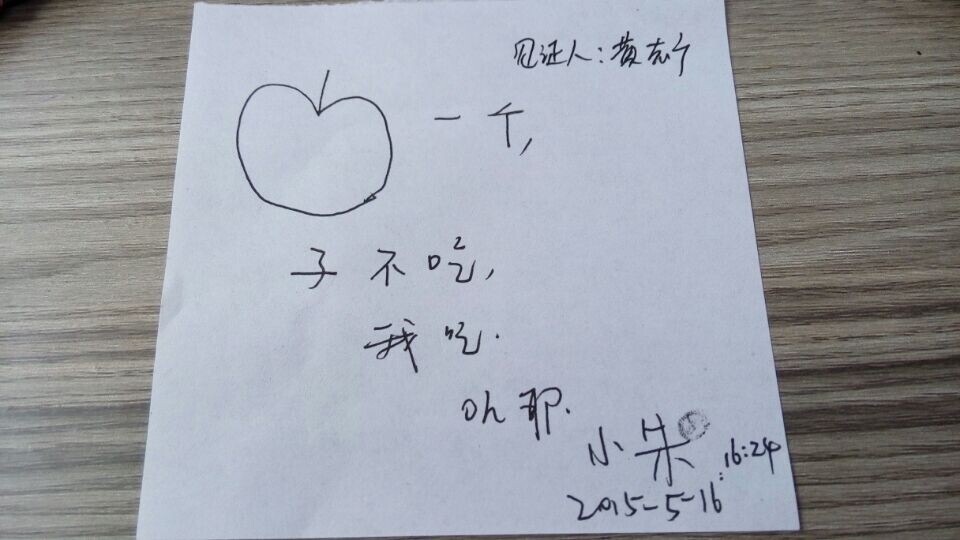 见证人:黄志宁
一个,
子不吃,
我吃.
oh耶.
小朱
16:24
2015-5-16